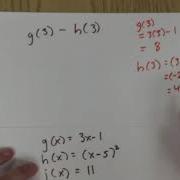 g(3) - h(3)
g(3)
= 3(3)-1
= 8
h(3) = (3
= (-2
= 4
g(x) = 3x-1
h(x) = (x-5)²
j(x) = 11